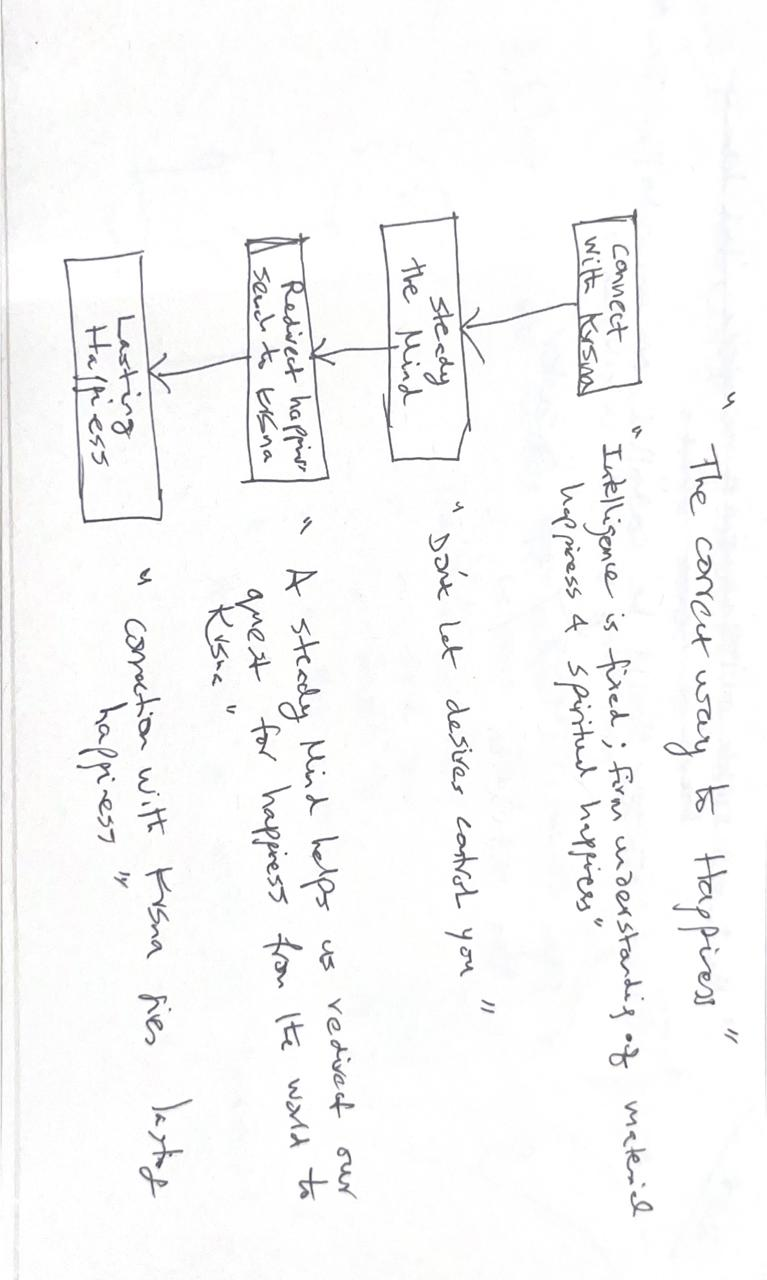 " The correct way to Happiness "
Connect
with Krsna
" Intelligence is fixed ; firm understanding of material
happiness & spiritual happiness "
the steady
Mind
" Don't let desires control you "
Redirect happiness
search to Krsna
" A steady Mind helps us redirect our
quest for happiness from the world to
Krsna "
Lasting
Happiness
" Connection with Krsna gives lasting
happiness "